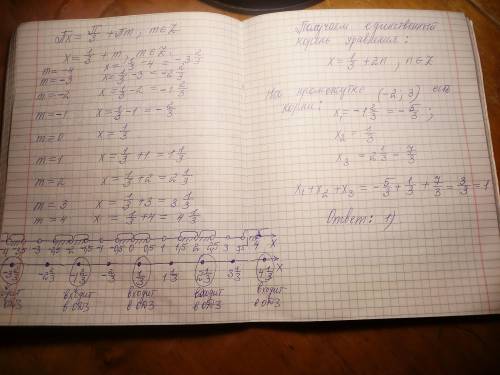 πx = π/3 + πm, m∈Z
x = 1/3 + m, m∈Z.
m = -4 x = 1/3 - 4 = -3 2/3
m = -3 x = 1/3 - 3 = -2 2/3
m = -2 x = 1/3 - 2 = -1 2/3
m = -1 x = 1/3 - 1 = -2/3
m = 0 x = 1/3
m = 1 x = 1/3 + 1 = 1 1/3
m = 2 x = 1/3 + 2 = 2 1/3
m = 3 x = 1/3 + 3 = 3 1/3
m = 4 x = 1/3 + 4 = 4 1/3
x
-2 2/3 -2/3 1/3 1 1/3 3 1/3 4 1/3 x
входит входит входит входит входит
в ОДЗ в ОДЗ в ОДЗ в ОДЗ в ОДЗ
Получаем единственный
корень уравнения:
x = 1/3 + 2n, n∈Z
На промежутке (-2; 3) есть
корни:
x₁ = -1 2/3 = -5/3;
x₂ = 1/3
x₃ = 2 1/3 = 7/3
x₁ + x₂ + x₃ = -5/3 + 1/3 + 7/3 = 3/3 = 1
Ответ: 1)